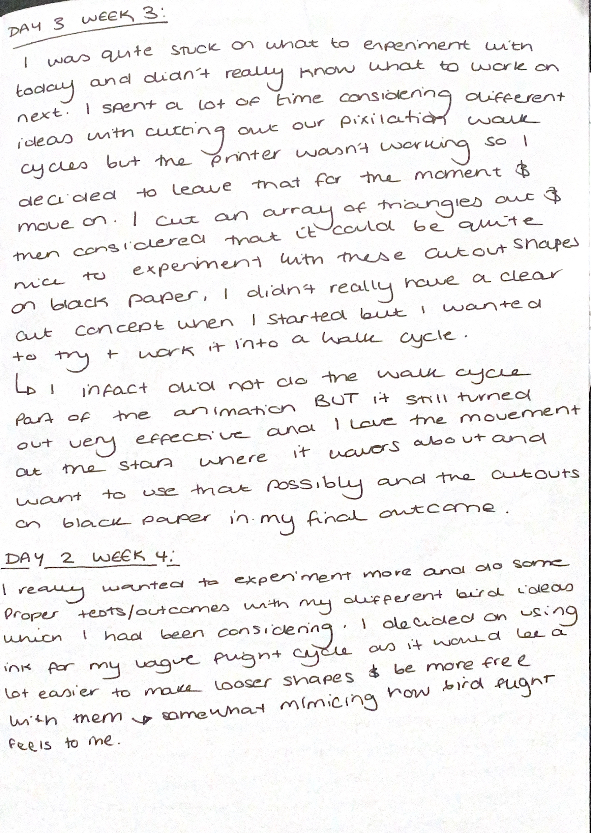 DAY 3 WEEK 3:
I was quite stuck on what to experiment with
today and didn't really know what to work on
next. I spent a lot of time considering different
ideas with cutting out our pixilation walk
cycles but the printer wasn't working so I
decided to leave that for the moment &
move on. I cut an array of triangles out &
then considered that it could be quite
nice to experiment with these cutout shapes
on black paper, I didn't really have a clear
cut concept when I started but I wanted
to try + work it into a walk cycle.
↳ I infact did not do the walk cycle
part of the animation BUT it still turned
out very effective and I love the movement
at the start where it wavers about and
want to use that possibly and the cutouts
on black paper in my final outcome.
DAY 2 WEEK 4:
I really wanted to experiment more and do some
proper tests/outcomes with my different bird ideas
which I had been considering. I decided on using
ink for my vague flight cycle as it would be a
lot easier to make looser shapes & be more free
with them → somewhat mimicing how bird flight
feels to me.